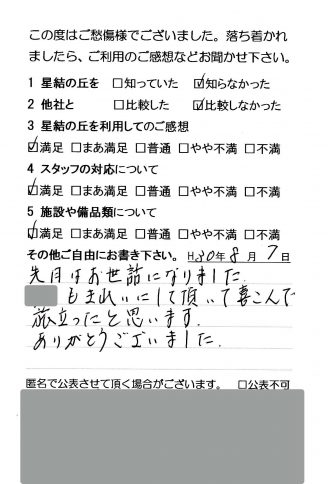 この度はご愁傷様でございました。落ち着かれ
ましたら、ご利用のご感想などお聞かせ下さい。
1 星結の丘を □知っていた ☑知らなかった
2 他社と □比較した ☑比較しなかった
3 星結の丘を利用してのご感想
☑満足 □まあ満足 □普通 □やや不満 □不満
4 スタッフの対応について
☑満足 □まあ満足 □普通 □やや不満 □不満
5 施設や備品類について
☑満足 □まあ満足 □普通 □やや不満 □不満
その他ご自由にお書き下さい。 H30年8月7日
先月はお世話になりました。
もきれいにして頂いて喜こんで
旅立ったと思います。
ありがとうございました。
匿名で公表させて頂く場合がございます。 □公表不可